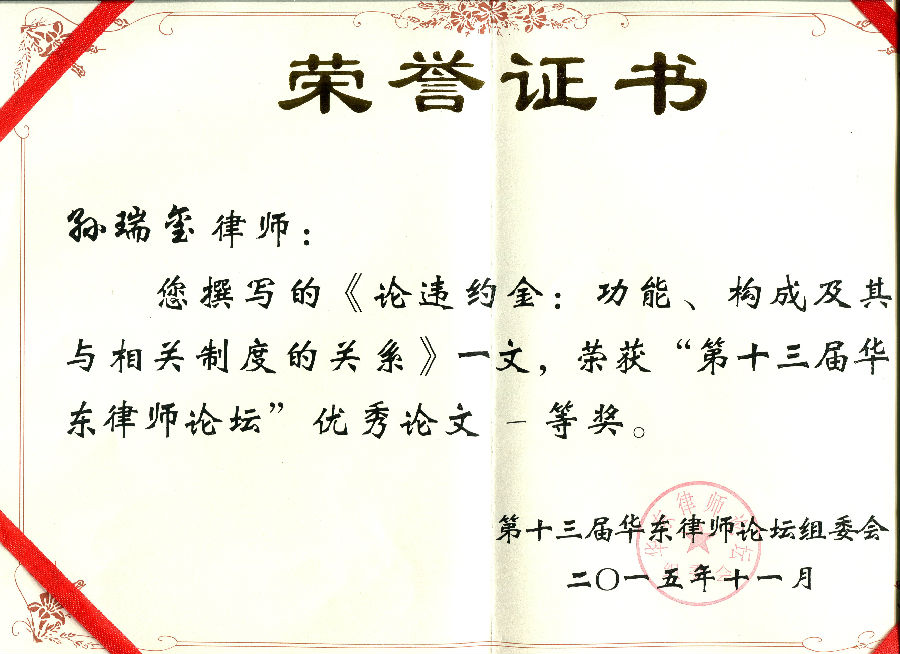 荣誉证书
孙瑞玺律师：
您撰写的《论违约金：功能、构成及其
与相关制度的关系》一文，荣获“第十三届华
东律师论坛”优秀论文 一等奖。
第十三届华东律师论坛组委会
二〇一五年十一月